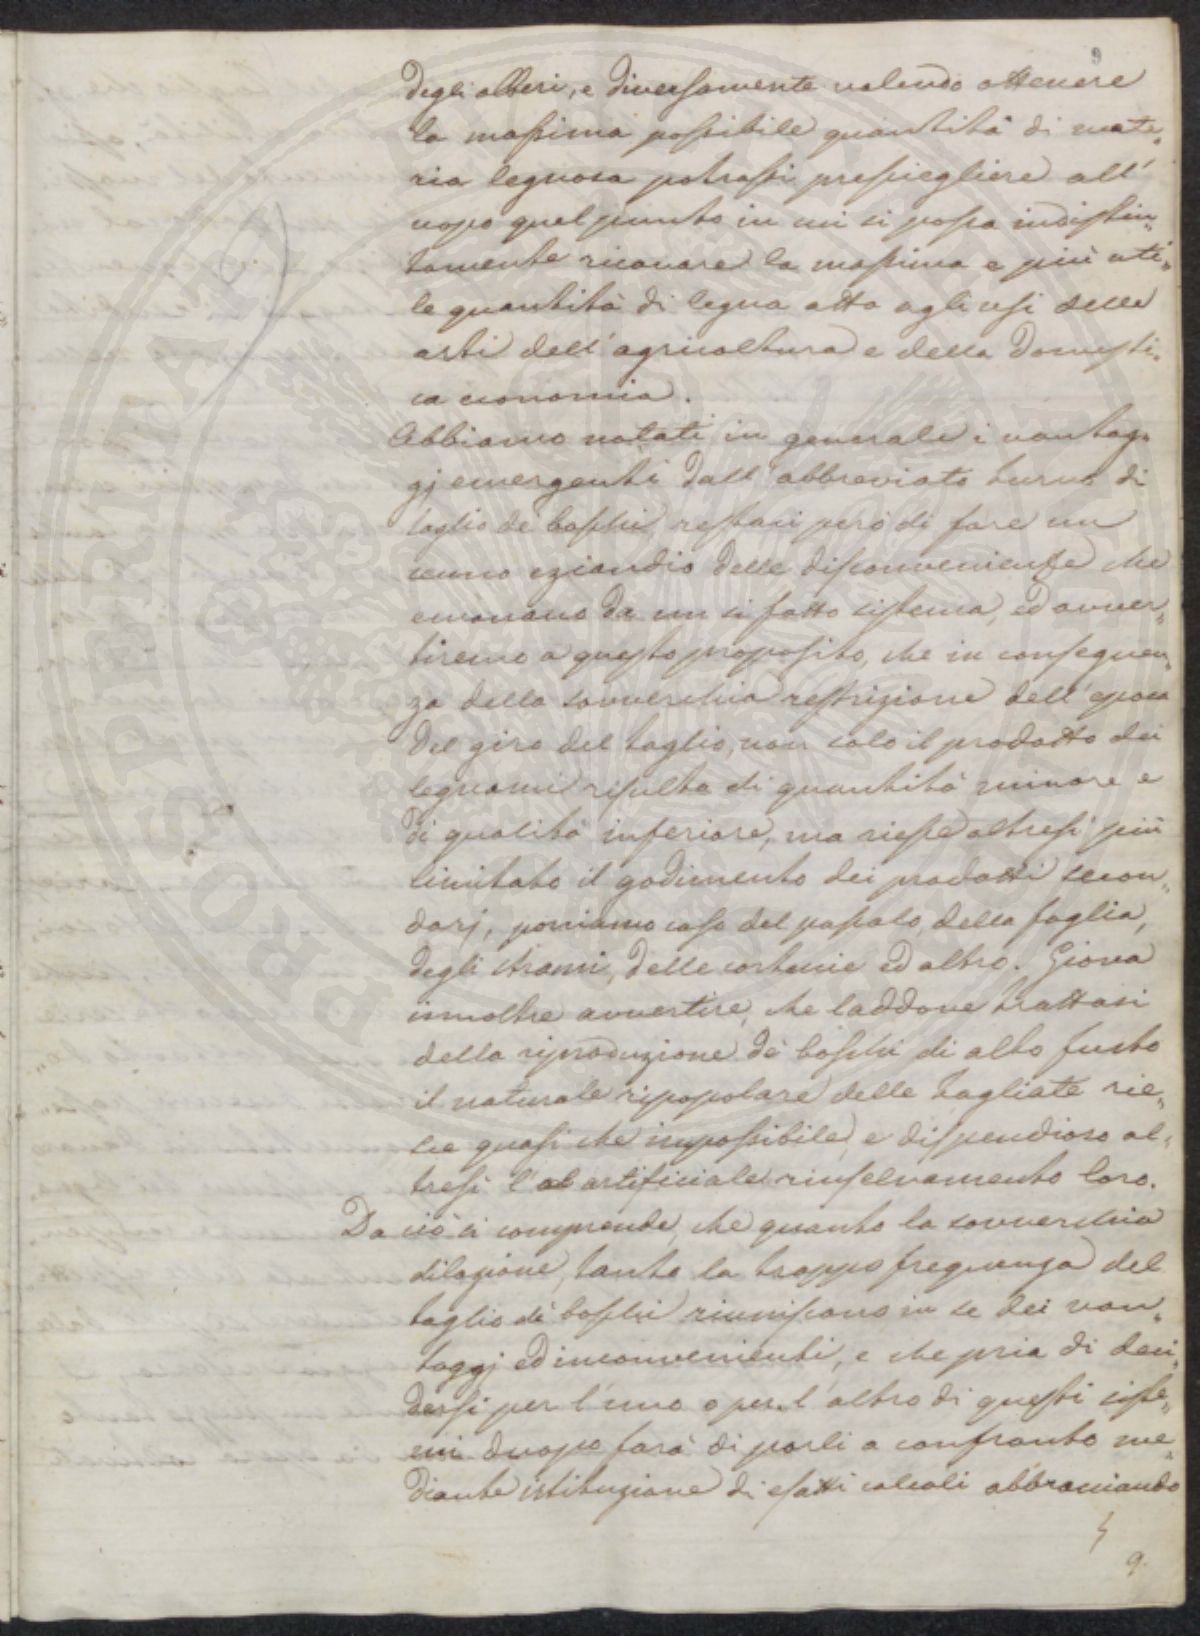 9
degli alberi, e diversamente volendo ottenere
la massima possibile quantità di mate„
ria legnosa potrassi presciegliere all'
uopo quel punto in cui si possa indistin„
tamente ricavare la massima e più uti„
le quantità di legna atta agli usi delle
arti dell'agricoltura e della domesti„
ca economia.
Abbiamo notati in generale i vantag„
gj emergenti dall'abbreviato turno di
taglio de' boschi, restaci però di fare un
cenno eziandio delle disconvenienze che
emanano da un sifatto sistema, ed avver„
tiremo a questo proposito, che in conseguen„
za della soverchia restrizione dell'epoca
del giro del taglio, non solo il prodotto dei
legnami risulta di quantità minore e
di qualità inferiore, ma riesce altresì più
limitato il godimento dei prodotti secon„
darj, poniamo caso del pascolo, della foglia,
degli strami, delle corteccie ed altro. Giova
innoltre avvertire, che laddove trattasi
della riproduzione de' boschi di alto fusto
il naturale ripopolare delle tagliate rie„
sce quasi che impossibile, e dispendioso al„
tresì l' artificiale rinselvamento loro.
Da ciò si comprende, che quanto la soverchia
dilazione, tanto la troppo frequenza del
taglio de' boschi riuniscono in se dei van„
taggj ed inconvenienti, e che pria di deci„
dersi per l'uno o per l'altro di questi siste„
mi duopo farà di porli a confronto me„
diante istituzione di esatti calcoli abbracciando
9.
PROSPERITATI